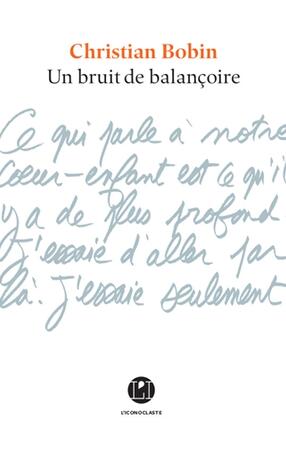 Christian Bobin
Un bruit de balançoire
Ce qui parle à notre
cœur-enfant est ce qu'il
y a de plus profond
J'essaie d'aller par
là. J'essaie seulement
L'I
L'ICONOCLASTE